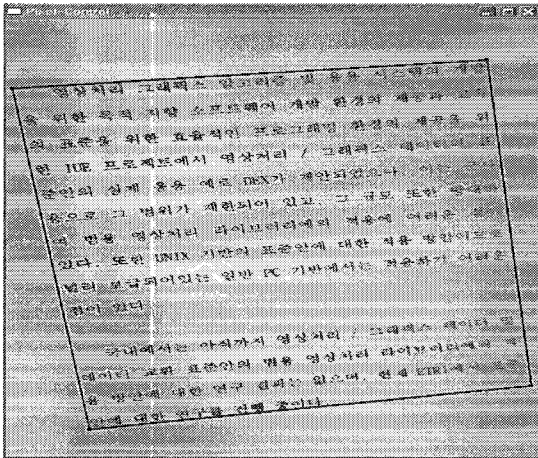 Pixel-Control
영상처리 그래픽스 알고리즘 및 응용 시스템의 개발
을 위한 목적 지향 소프트웨어 개발 환경의 제공과
의 표준을 위한 효율적인 프로그래밍 환경의 제공을 위
한 IUE 프로젝트에서 영상처리 / 그래픽스 데이터의 표
준안의 설계 응용 예로 DEX가 제안되었으나, 이는
용으로 그 범위가 제한되어 있고, 그 규모 또한
여 범용 영상처리 라이브러리에의 적용에 어려운
있다. 또한 UNIX 기반의 표준안에 대한 적용 방안이므로
널리 보급되어있는 일반 PC 기반에서는 적용하기 어려운
점이 있다.
국내에서는 아직까지 영상처리 / 그래픽스 데이터 및
데이터 교환 표준안의 범용 영상처리 라이브러리에의 적
용 방안에 대한 연구 결과는 없으며, 현재 ETRI에서
안에 대한 연구를 진행 중이다.